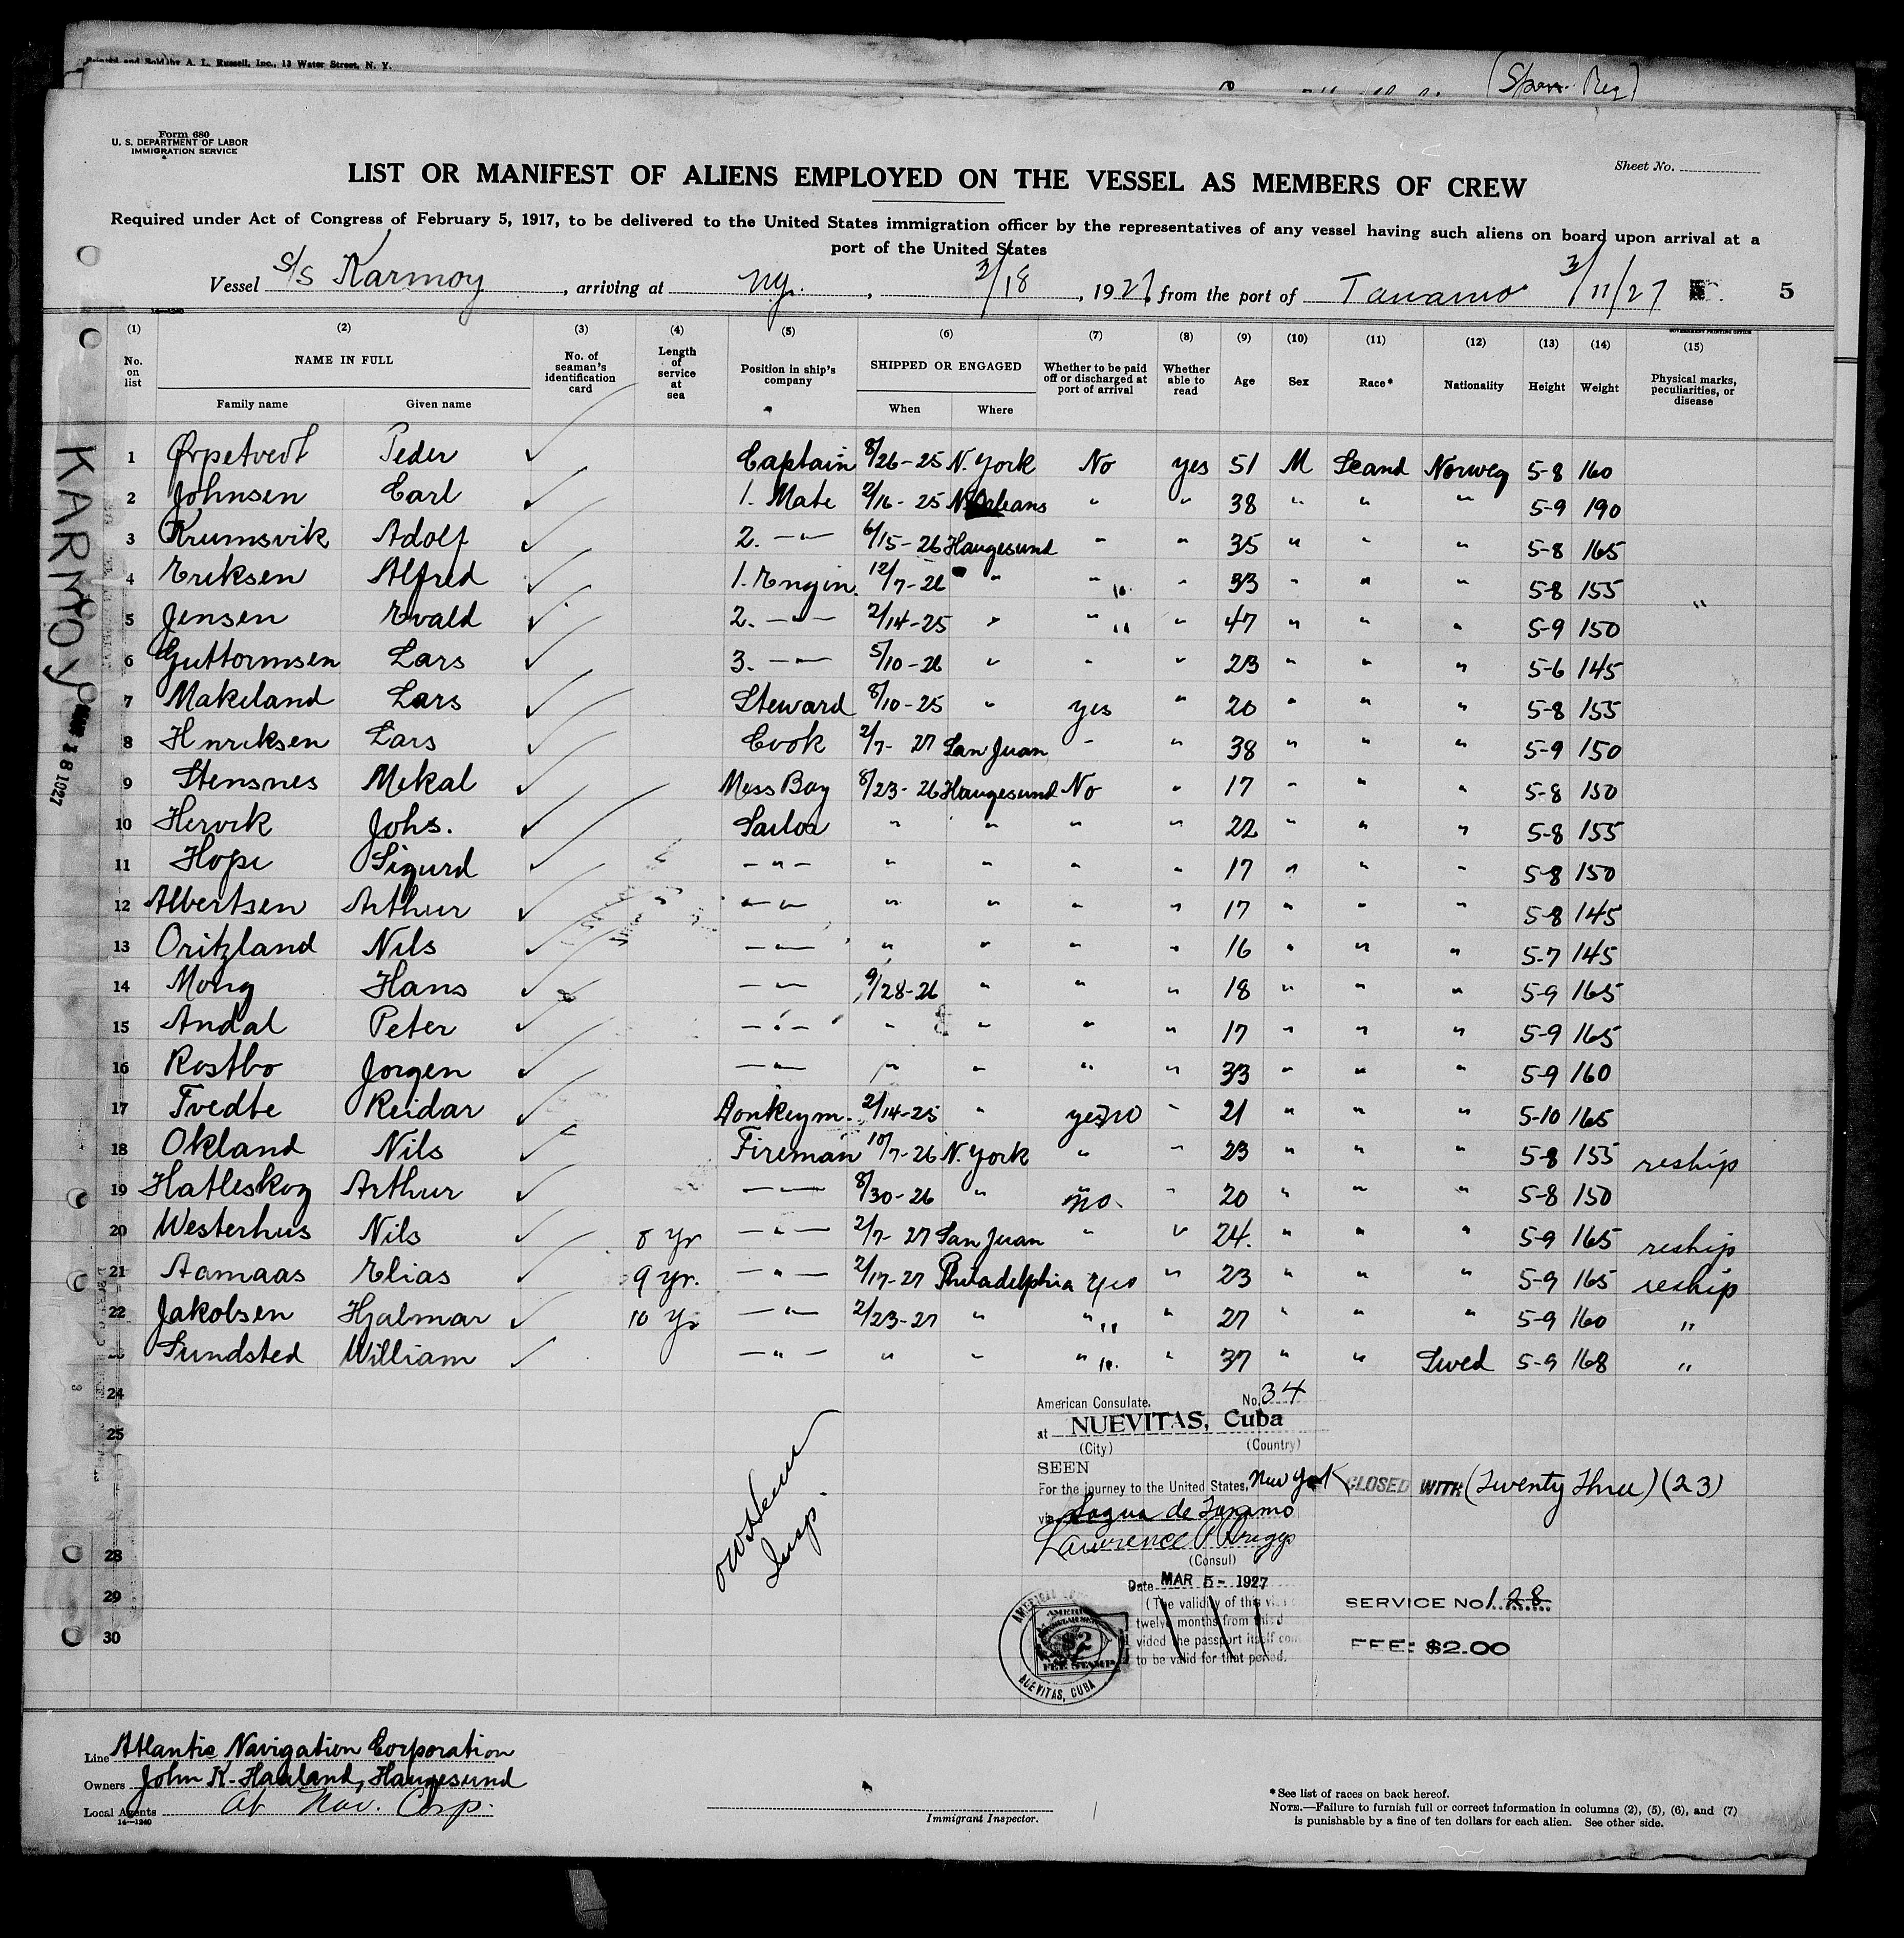 Printed and Sold by A. L. Russell, Inc., 13 Water Street, N. Y.
Form 680
U. S. DEPARTMENT OF LABOR
IMMIGRATION SERVICE
Sheet No.
LIST OR MANIFEST OF ALIENS EMPLOYED ON THE VESSEL AS MEMBERS OF CREW
Required under Act of Congress of February 5, 1917, to be delivered to the United States immigration officer by the representatives of any vessel having such aliens on board upon arrival at a
port of the United States
Vessel S/S Karmoy, arriving at Ny., 3/18, 1927, from the port of Tanamo 3/11/27 5
(1) (2) (3) (4) (5) (6) (7) (8) (9) (10) (11) (12) (13) (14) (15)
No. on list NAME IN FULL Family name Given name No. of seaman's identification card Length of service at sea Position in ship's company SHIPPED OR ENGAGED When Where Whether to be paid off or discharged at port of arrival Whether able to read Age Sex Race* Nationality Height Weight Physical marks, peculiarities, or disease
1 Ørpetvedt Peder Captain 8/26-25 N. York No yes 51 M Scand Norweg 5-8 160
2 Johnsen Carl 1. Mate 2/16-25 N.Orleans " " 38 " " " 5-9 190
3 Krumsvik Adolf 2. -"- 6/15-26 Haugesund " " 35 " " " 5-8 165
4 Eriksen Alfred 1. Engin. 12/7-26 " " " 33 " " " 5-8 155
5 Jensen Evald 2. -"- 2/14-25 " " " 47 " " " 5-9 150
6 Guttormsen Lars 3. -"- 5/10-26 " " " 23 " " " 5-6 145
7 Makeland Lars Steward 8/10-25 " yes " 20 " " " 5-8 155
8 Hnriksen Lars Cook 2/7-27 San Juan " " 38 " " " 5-9 150
9 Stensnes Mekal Mess Boy 8/23-26 Haugesund No " 17 " " " 5-8 150
10 Hervik Johs. Sailor " " " " 22 " " " 5-8 155
11 Hope Sigurd -"- " " " " 17 " " " 5-8 150
12 Albertsen Arthur -"- " " " " 17 " " " 5-8 145
13 Oritzland Nils -"- " " " " 16 " " " 5-7 145
14 Mong Hans -"- 9/28-26 " " " 18 " " " 5-9 165
15 Andal Peter -"- " " " " 17 " " " 5-9 165
16 Rostbo Jorgen -"- " " " " 33 " " " 5-9 160
17 Tvedte Reidar Donkeym. 2/14-25 " yes no " 21 " " " 5-10 165
18 Okland Nils Fireman 10/7-26 N. York " " 23 " " " 5-8 155 reship
19 Hatleskog Arthur -"- 8/30-26 " no. " 20 " " " 5-8 150
20 Westerhus Nils 8 yr -"- 2/7-27 San Juan " " 24. " " " 5-9 165 reship
21 Aamaas Elias 9 yr. -"- 2/17-27 Philadelphia yes " 23 " " " 5-9 165 reship
22 Jakobsen Hjalmar 10 yr -"- 2/23-27 " " " 27 " " " 5-9 160 "
Sundsted William -"- " " " " 37 " " Swed 5-9 168 "
24
25
28
29
30
KARMOY
18 1927
American Consulate. No. 34
at NUEVITAS, Cuba
(City) (Country)
SEEN
For the journey to the United States, New York CLOSED WITH (Twenty Three) (23)
via Sagua de Tanamo
Lawrence P Briggs
(Consul)
Date MAR 5 - 1927
(The validity of this
twelve months from
vided the passport itself
to be valid for that period.
SERVICE No. 128
FEE: $2.00
$2
FEE STAMP
NUEVITAS, CUBA
Insp.
Line Atlantic Navigation Corporation
Owners John K. Haaland, Haugesund
Local Agents At Nav. Corp.
14-1240
Immigrant Inspector.
*See list of races on back hereof.
NOTE.—Failure to furnish full or correct information in columns (2), (5), (6), and (7)
is punishable by a fine of ten dollars for each alien. See other side.